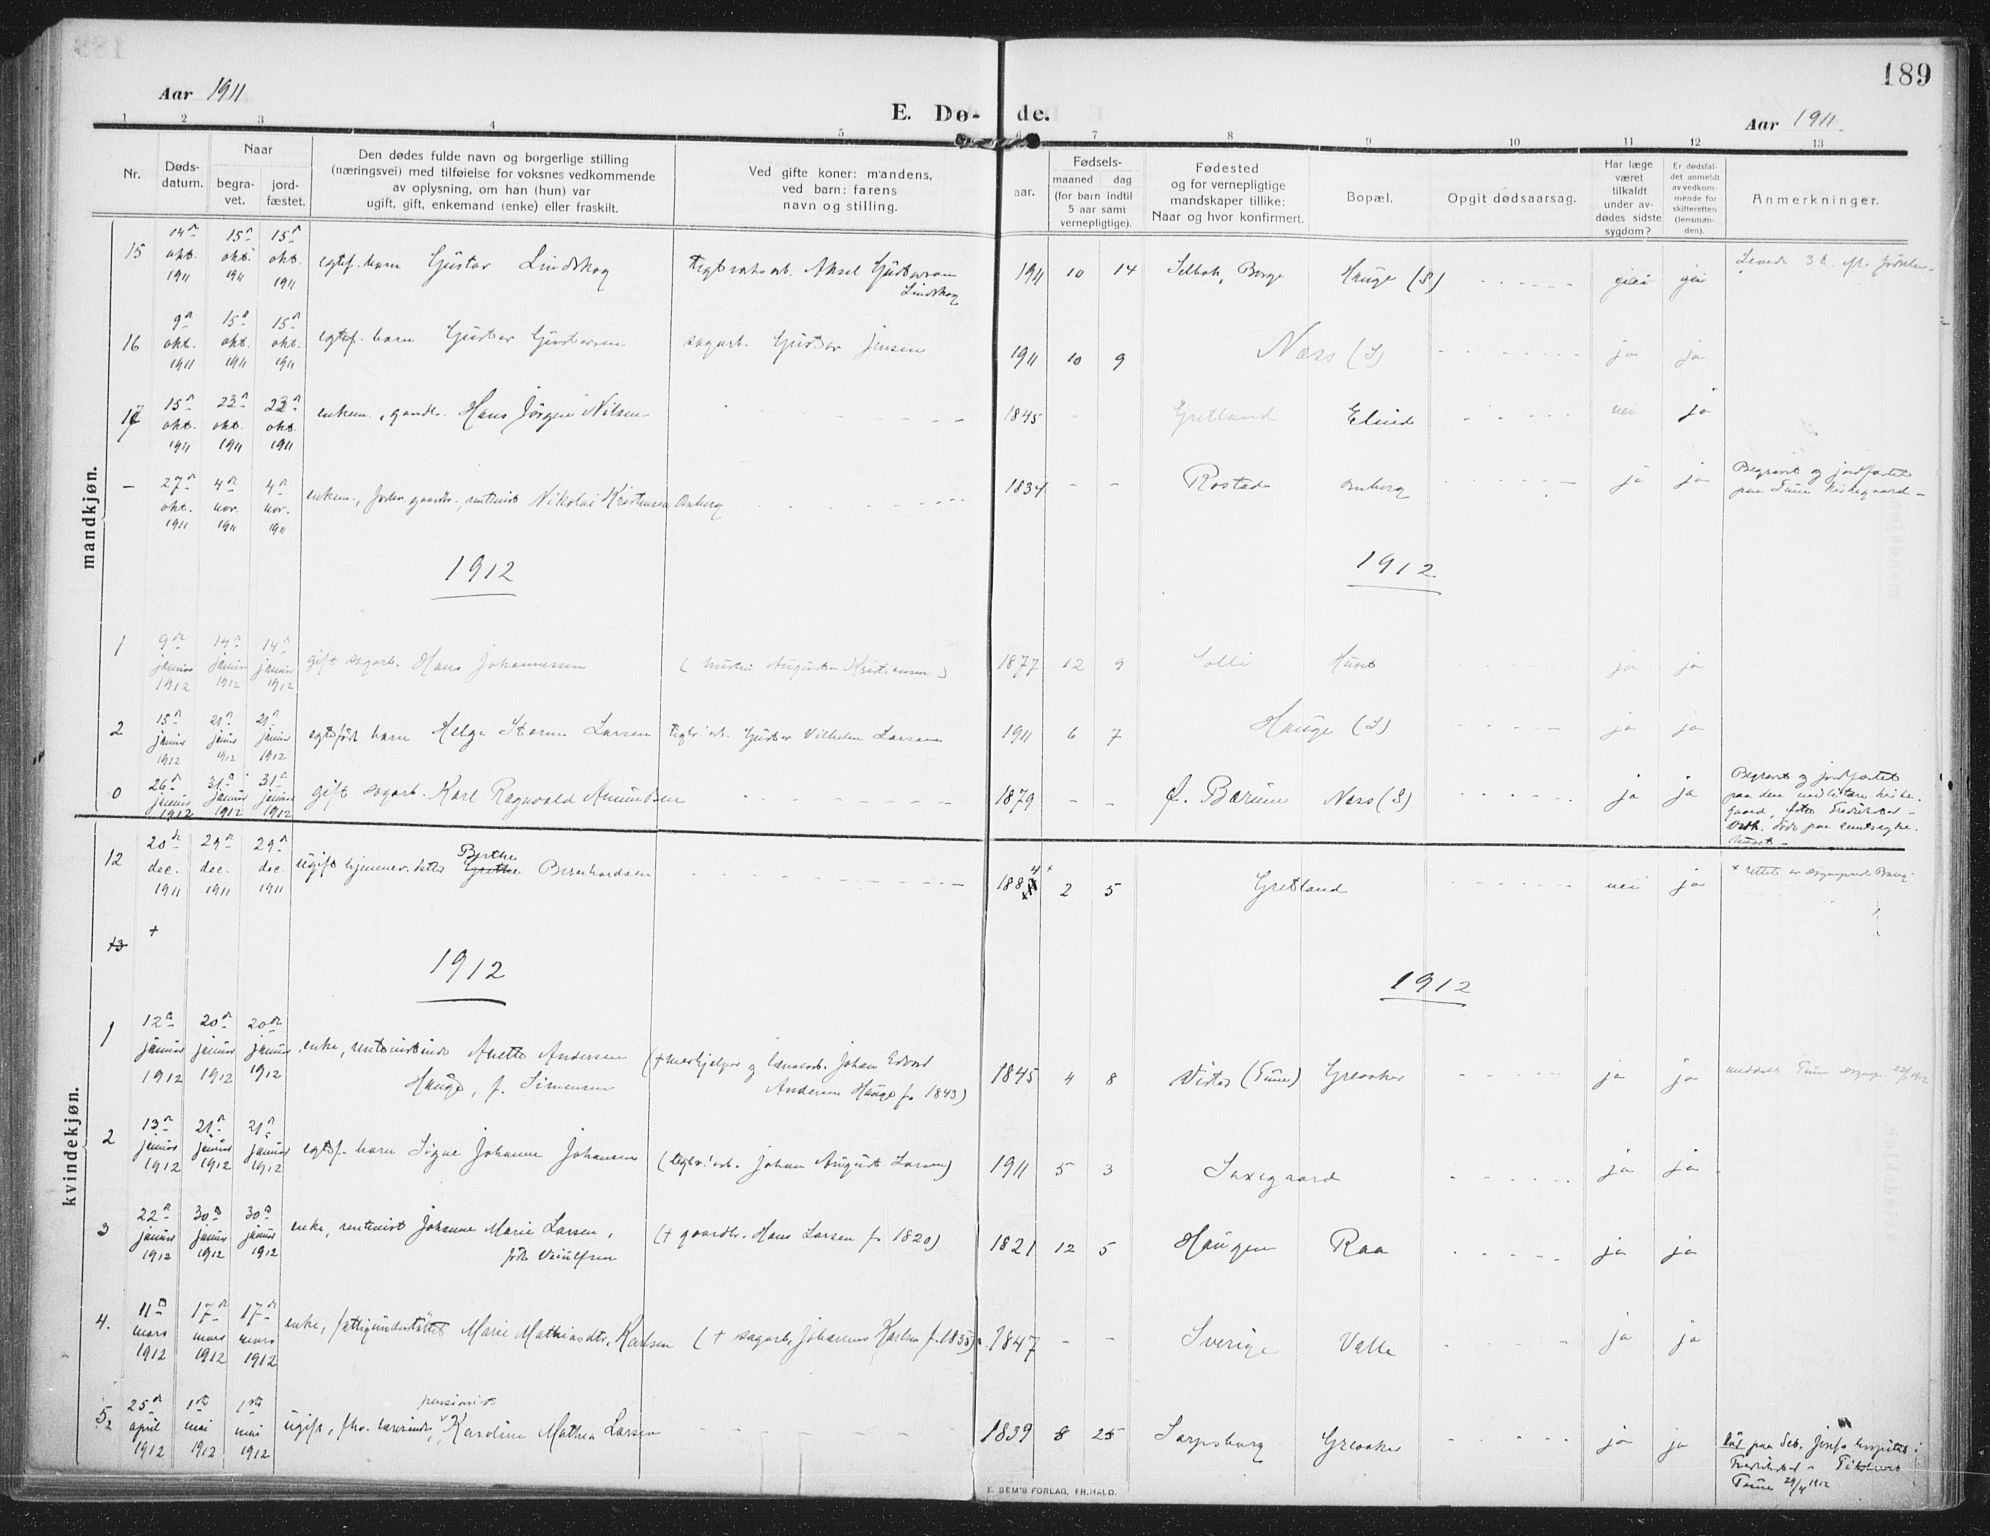 189
Aar 1911
E. Dø- de.
Aar 1911.
1 2 3 4 5 6 7 8 9 10 11 12 13
Nr.
Døds-
datum.
Naar
begra-
vet.
jord-
fæstet.
Den dødes fulde navn og borgerlige stilling
(næringsvei) med tilføielse for voksnes vedkommende
av oplysning, om han (hun) var
ugift, gift, enkemand (enke) eller fraskilt.
Ved gifte koner: mandens,
ved barn: farens
navn og stilling.
aar.
Fødsels-
maaned dag
(for barn indtil
5 aar samt
vernepligtige).
Fødested
og for vernepligtige
mandskaper tillike:
Naar og hvor konfirmert.
Bopæl.
Opgit dødsaarsag.
Har læge
været
tilkaldt
under av-
dødes sidste
sygdom?
Er dødsfal-
det anmeldt
av vedkom-
mende for
skifteretten
(lensman-
den).
Anmerkninger.
mandkjøn.
15 14de okt. 1911 15de okt. 1911 15de okt. 1911 egtef. barn Gustav Lindskog teglverksarb. Aksel Gustavsen
Lindskog 1911 10 14 Selbak, Borge Hauge (S) - - - - - - nei nei Levede 3 t. eft. fødselen
16 9de okt. 1911 15de okt. 1911 15de okt. 1911 egtef. barn Gustav Gustavsen sagarb. Gustav Jensen 1911 10 9 Næss (S) - - - - - - ja ja
17 15de okt. 1911 23de okt. 1911 23de okt. 1911 enkem., gaardbr. Hans Jørgen Nilsen - - - - 1845 - Gretland Elind - - - - - nei ja
- 27de okt. 1911 4de nov. 1911 4de nov. 1911 enkem., forhv. gaardbr., rentenist Nikolai Kristensen Omberg - - - - 1834 - - Rostad Omberg - - - - - - ja ja Begravet og jordfæstet
paa Tune kirkegaard -
1912 1912
1 9de januar 1912 14de januar 1912 14de januar 1912 gift sagarb. Hans Johannessen (hustru Augusta Kristiansen) 1877 12 9 Solli Huset - - - - - ja ja
2 15de januar 1912 21de januar 1912 21de januar 1912 egtefødt barn Helge Storm Larsen teglv.arb. Gustav Vilhelm Larsen 1911 6 7 Hauge (S) - - - - - ja ja
0 26de januar 1912 31de januar 1912 31de januar 1912 gift sagarb. Karl Ragnvald Amundsen - - - - - 1879 - - Ø. Bærum Næss (S) - - - - - ja ja Begravet og jordfæstet
paa den militære kirke-
gaard, Fredrikstad -
døde paa amtssyke-
huset -
kvindekjøn.
12 20de dec. 1911 29de dec. 1911 29de dec. 1911 ugift hjemmev. datter Berthe Grethe Bernhardsen - - - - - 1884 2 5 Gretland - - - - - nei ja + rettet av sogneprest
13 +
1912 1912
1 12te januar 1912 20de januar 1912 20de januar 1912 enke, rentenistinde Anette Andersen
Hauge, f. Simensen (+ Johan Edvard
Andersen Hauge f. 1843) 1845 4 8 Visted (Tune) Greaaker - - - - - ja ja meddelt Tune sogn 22/1 1912
2 13de januar 1912 21de januar 1912 21de januar 1912 egtef. barn Signe Johanne Johansen (teglv.arb. Johan August Larsen) 1911 5 3 Saxegaard - - - - - ja ja
3 22de januar 1912 30de januar 1912 30de januar 1912 enke, rentenist Johanne Marie Larsen,
født (+ gaardbr. Hans Larsen f. 1820) 1821 12 5 Haugen Raa - - - - - ja ja
4. 11te mars 1912 17de mars 1912 17de mars 1912 enke, fattigunderstøttet Marie Mathiasdtr. Karlsen (+ sagarb. Johannes Karlsen f. 1835) 1847 - - Sverige Valle - - - - - ja ja
5. 25de april 1912 1ste mai 1912 1ste mai 1912 ugift, fhv. lærerinde, pensionist Karoline Mathea Larsen - - - - - 1839 8 25 Sarpsborg Greaaker - - - - - ja ja Død paa St. Josefs hospital i
Fredrikstad -
Tune 29/4 1912
E. SEM'S FORLAG, FR.HALD.